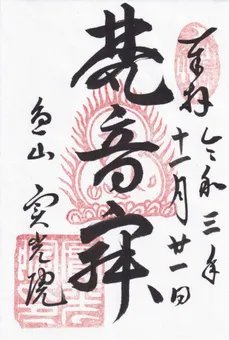 奉拝
令和三年
十一月廿一日
梵音拝
魚山
実光院